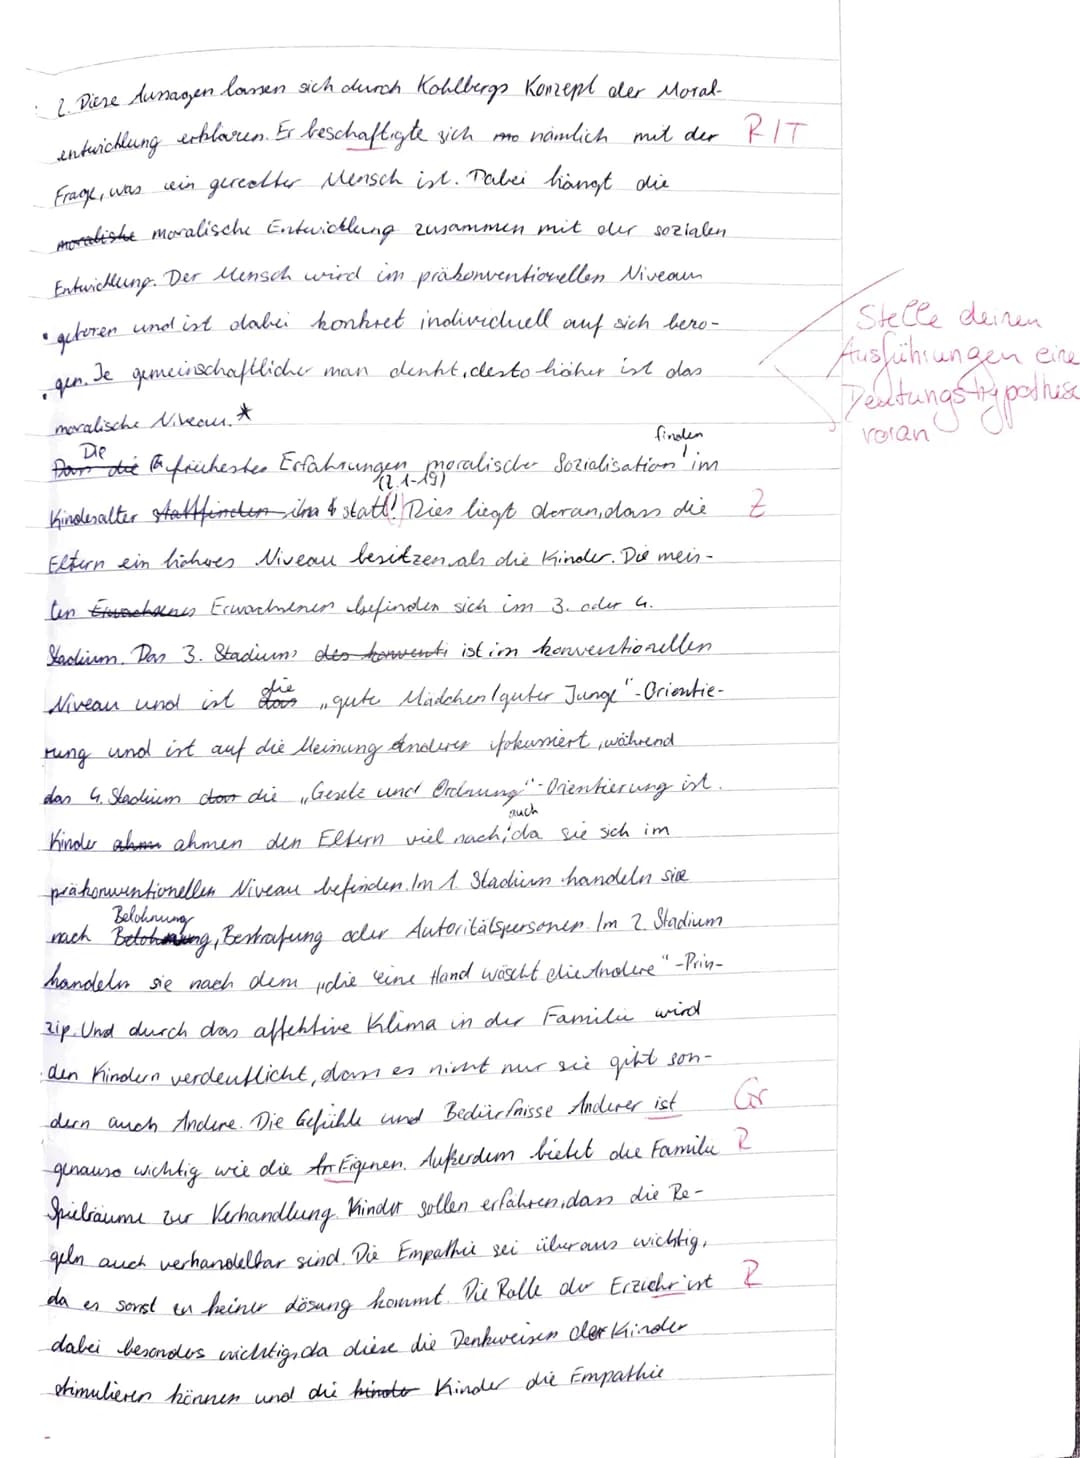 2. Diese Aussagen lassen sich durch Kohlbergs Konzept der Moral-
entwicklung erklären. Er beschäftigte sich nämlich mit der R/T
Frage, was ein gerechter Mensch ist. Dabei hängt die
moralische moralische Entwicklung zusammen mit der sozialen
Entwicklung. Der Mensch wird im präkonventionellen Niveau
geboren und ist dabei konkret individuell auf sich bezo-
gen. Je gemeinschaftlicher man denkt, desto höher ist das
moralische Niveau. *
Stelle deinen
Ausführungen eine
Deutungshypothese
voran
Die finden
Dass die frühesten Erfahrungen moralischer Sozialisation im
(Z. 1-19)
Kindesalter stattfinden statt! Dies liegt daran, dass die Z
Eltern ein höheres Niveau besitzen als die Kinder. Die meis-
ten Erwachsenen Erwachsenen befinden sich im 3. oder 4.
Stadium. Das 3. Stadium des konventi ist im konventionellen
die
Niveau und ist das „gute Mädchen/guter Junge"-Orientie-
rung und ist auf die Meinung Anderer fokussiert, während
das 4. Stadium die „Gesetz und Ordnung"-Orientierung ist.
auch
Kinder ahm ahmen den Eltern viel nach, da sie sich im
präkonventionellen Niveau befinden. Im 1. Stadium handeln sie
Belohnung
nach Belohnung, Bestrafung oder Autoritätspersonen. Im 2. Stadium
handeln sie nach dem „die eine Hand wäscht die Andere"-Prin-
zip. Und durch das affektive Klima in der Familie wird
den Kindern verdeutlicht, dass es nicht nur sie gibt son-
dern auch Andere. Die Gefühle und Bedürfnisse Anderer ist Gr
genauso wichtig wie die Eigenen. Außerdem bietet die Familie R
Spielräume zur Verhandlung. Kinder sollen erfahren, dass die Re-
geln auch verhandelbar sind. Die Empathie sei überaus wichtig,
da es sonst zu keiner Lösung kommt. Die Rolle der Erziehr ist R
dabei besonders wichtig, da diese die Denkweisen der Kinder
stimulieren können und die kinder Kinder die Empathie